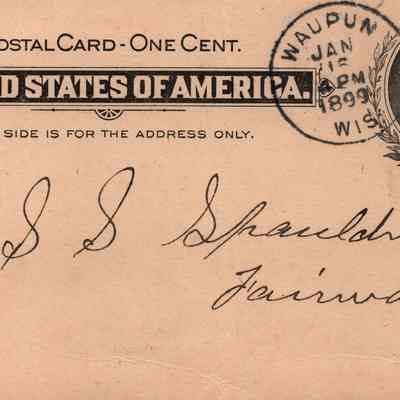 POSTAL CARD - ONE CENT.
D STATES OF AMERICA.
SIDE IS FOR THE ADDRESS ONLY.
WAUPUN
JAN
PM
1899
WIS
S S Spauldi
Fairwa